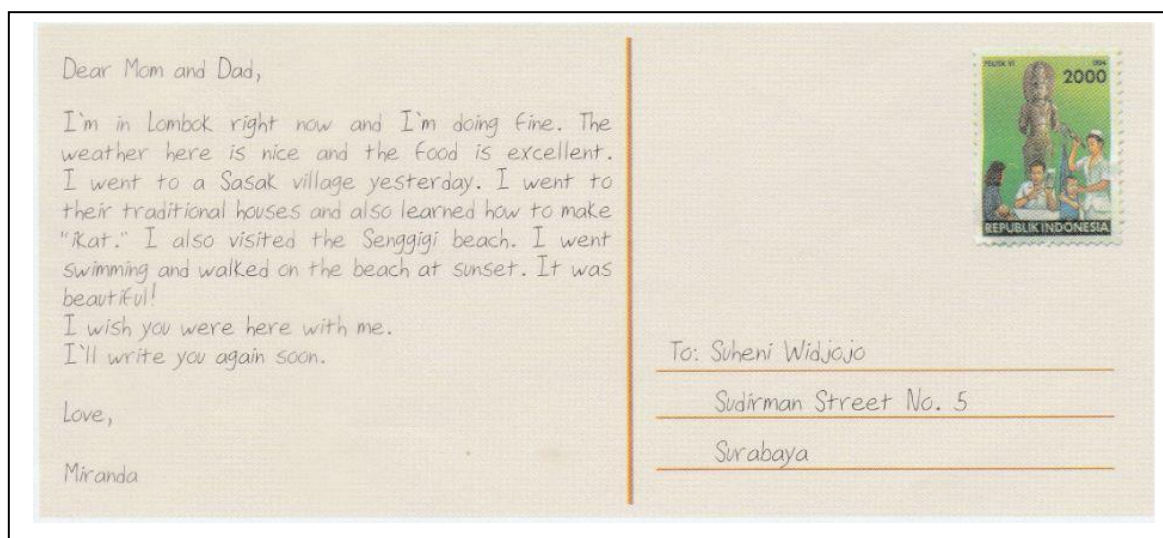 Dear Mom and Dad,
I'm in Lombok right now and I'm doing fine. The
weather here is nice and the food is excellent.
I went to a Sasak village yesterday. I went to
their traditional houses and also learned how to make
"ikat." I also visited the Senggigi beach. I went
swimming and walked on the beach at sunset. It was
beautiful!
I wish you were here with me.
I'll write you again soon.
Love,
Miranda
2000
REPUBLIK INDONESIA
To: Suheni Widjojo
Sudirman Street No. 5
Surabaya